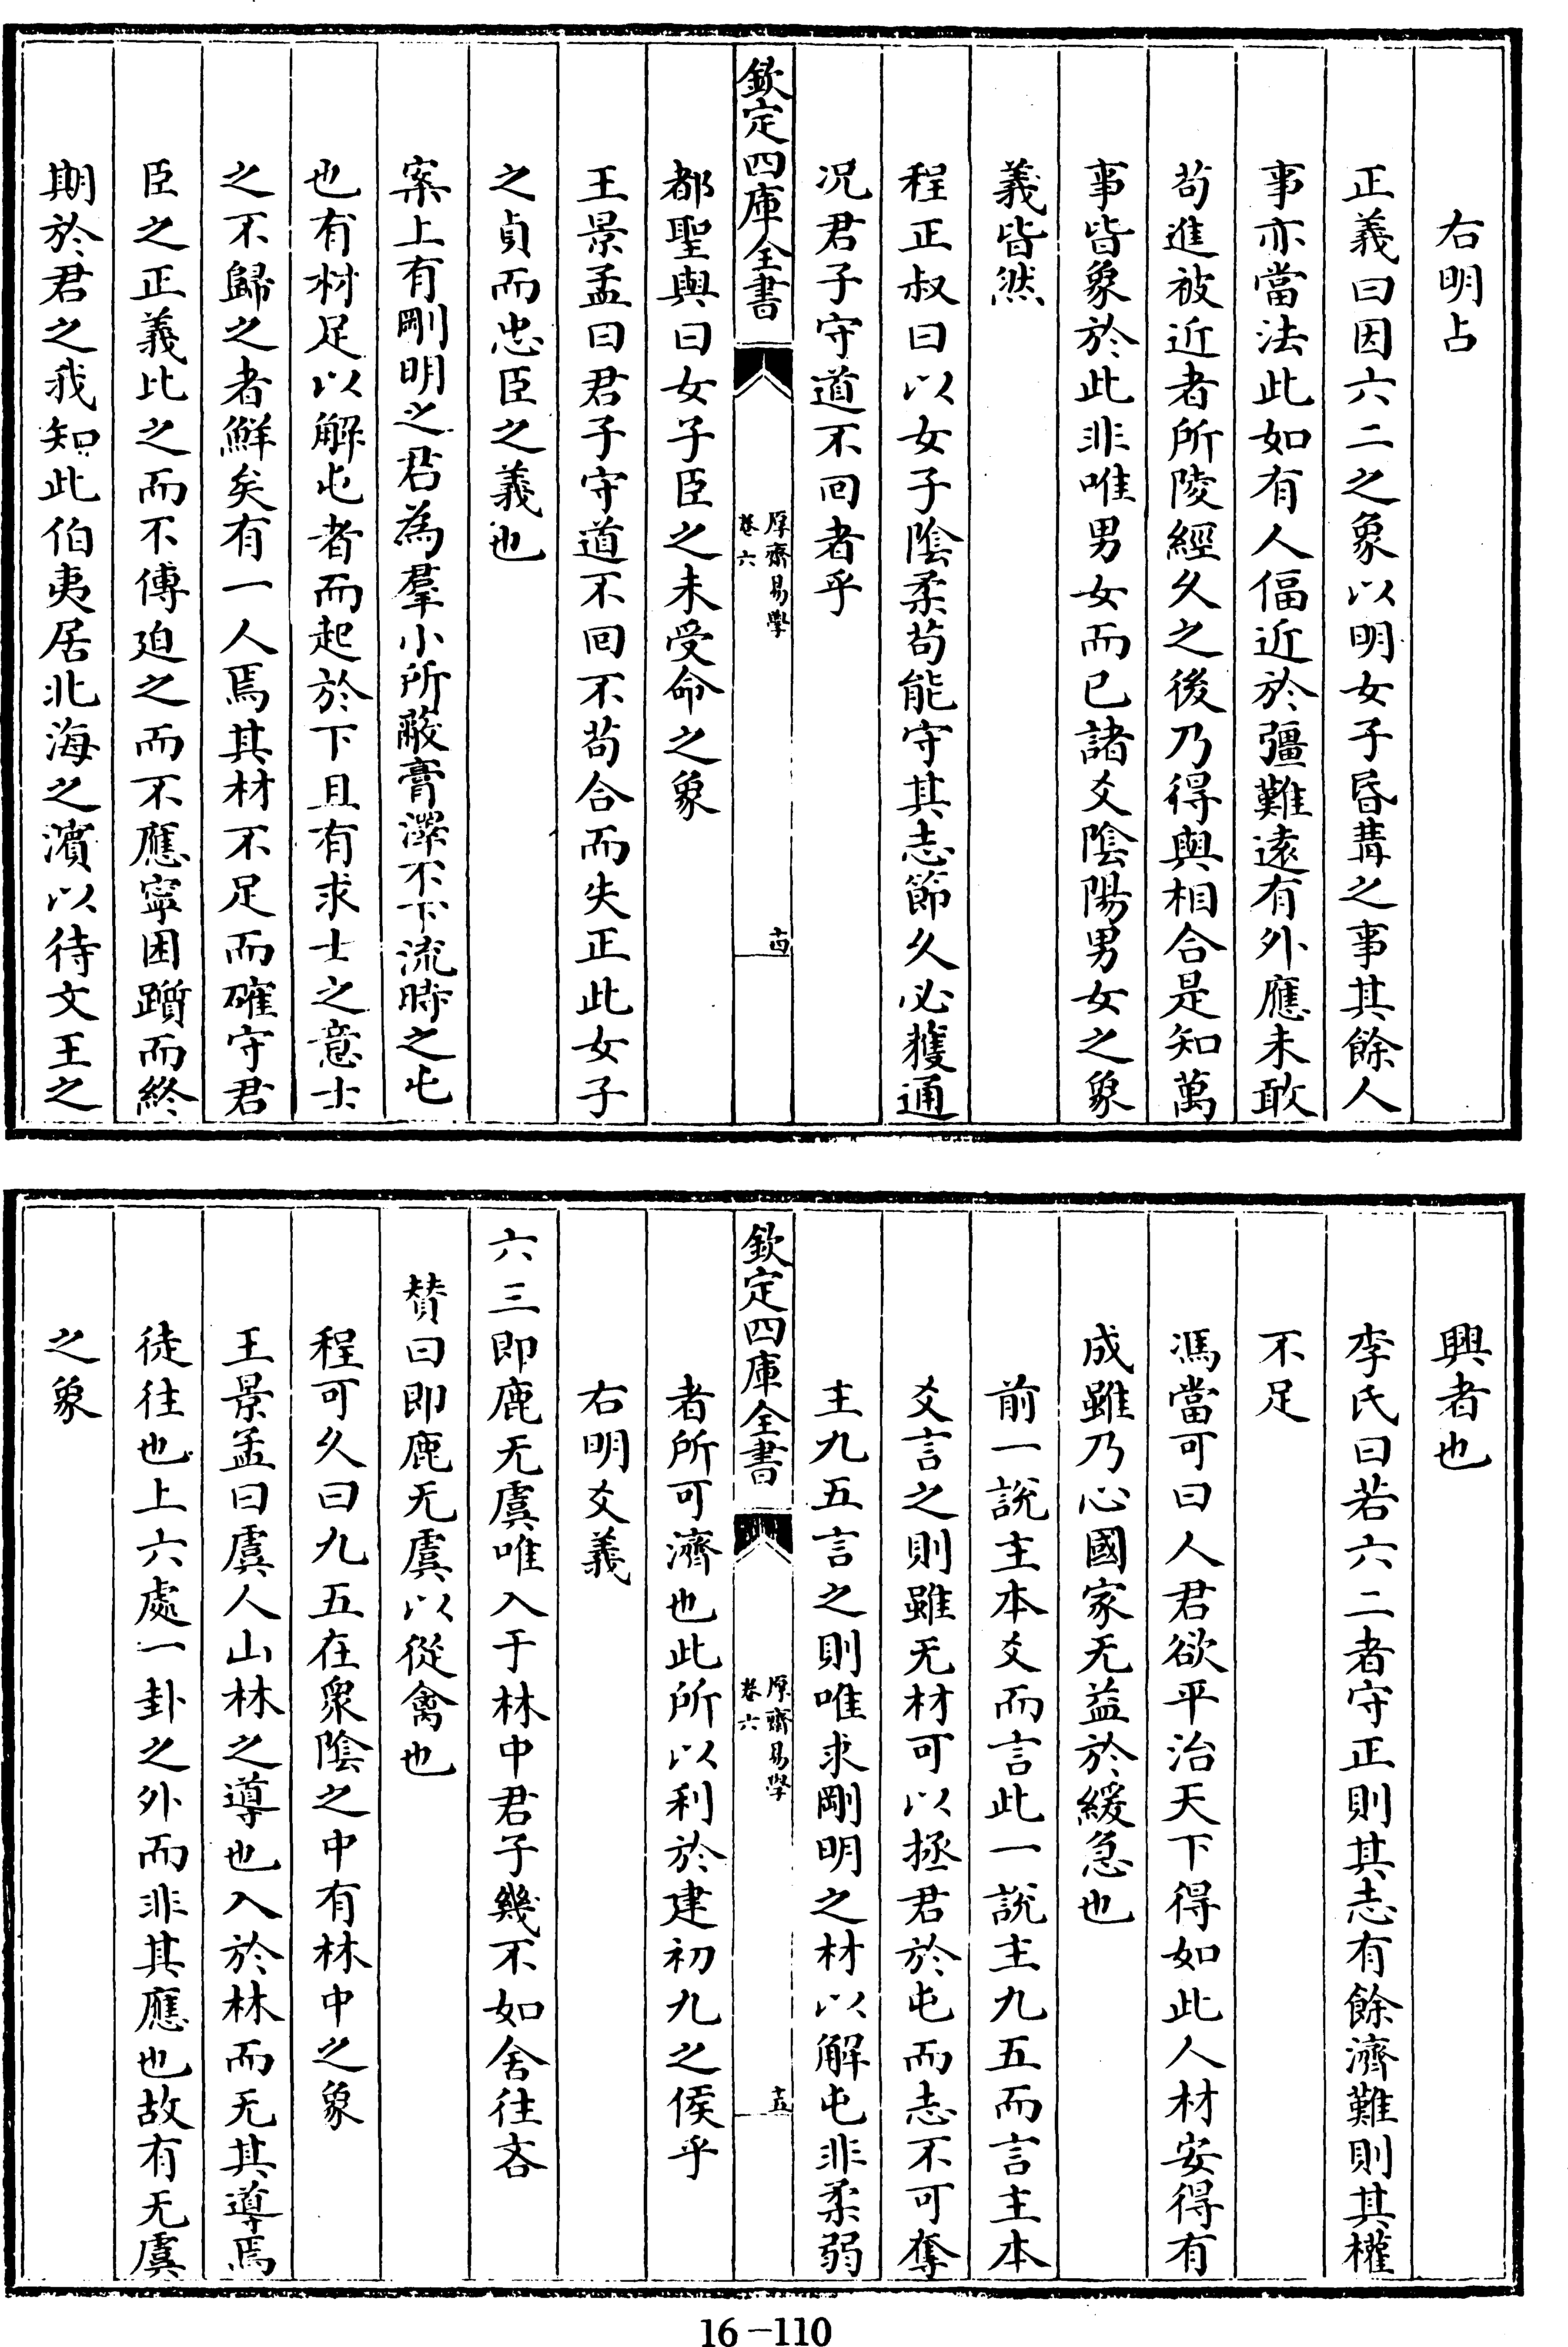 右明占
正義曰因六二之象以明女子昏媾之事其餘人
事亦當法此如有人偪近於彊難遠有外應未敢
苟進被近者所陵經久之後乃得與相合是知萬
事皆象於此非唯男女而已諸爻陰陽男女之象
義皆然
程正叔曰以女子陰柔苟能守其志節久必獲通
况君子守道不回者乎
欽定四庫全書
厚齋易學
卷六
十四
都聖與曰女子臣之未受命之象
王景孟曰君子守道不回不苟合而失正此女子
之貞而忠臣之義也
案上有剛明之君為羣小所蔽膏澤不下流時之屯
也有材足以解屯者而起於下且有求士之意士
之不歸之者鮮矣有一人焉其材不足而確守君
臣之正義比之而不傅迫之而不應寧困躓而終
期於君之我知此伯夷居北海之濱以待文王之
興者也
李氏曰若六二者守正則其志有餘濟難則其權
不足
馮當可曰人君欲平治天下得如此人材安得有
成雖乃心國家无益於緩急也
前一說主本爻而言此一說主九五而言主本
爻言之則雖无材可以拯君於屯而志不可奪
主九五言之則唯求剛明之材以解屯非柔弱
欽定四庫全書
厚齋易學
卷六
十五
者所可濟也此所以利於建初九之侯乎
右明爻義
六三即鹿无虞唯入于林中君子幾不如舍往吝
贊曰即鹿无虞以從禽也
程可久曰九五在衆陰之中有林中之象
王景孟曰虞人山林之導也入於林而无其導焉
徒往也上六處一卦之外而非其應也故有无虞
之象
16-110